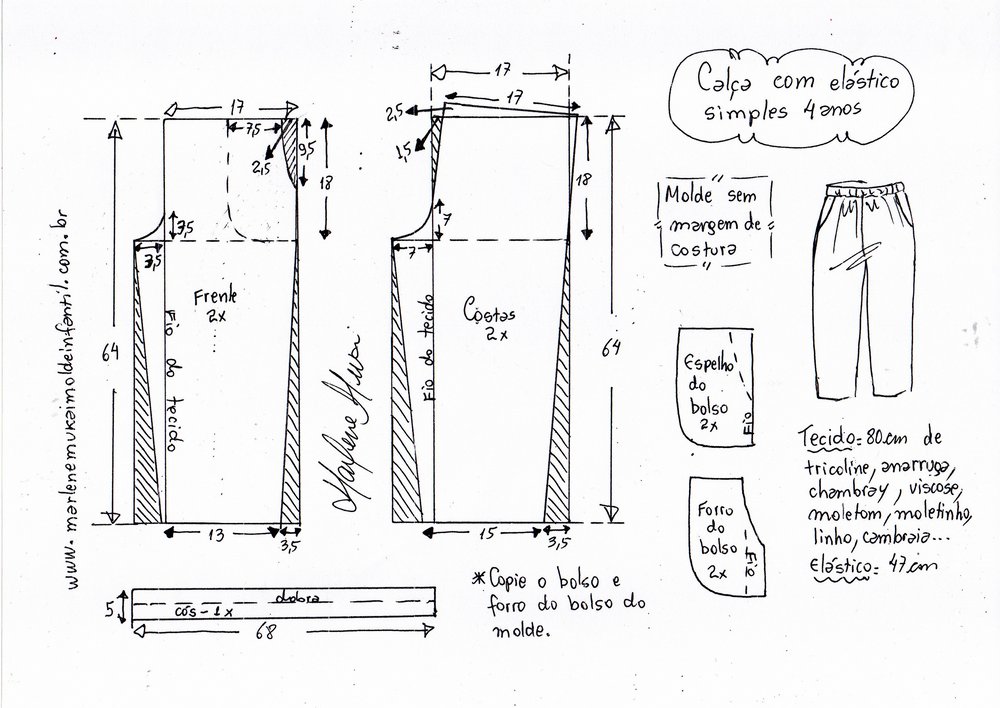 Calça com elástico
simples 4 anos
17
17
17
7,5
2,5
9,5
18
2,5
1,5
18
Molde sem
margem de
costura
3,5
3,5
7
7
Frente
2x
Fio do tecido
64
Costas
2x
Fio do tecido
64
www.marlenemukaimoldeinfantil.com.br
Espelho
do
bolso
2x
Fio
Tecido= 80cm de
tricoline, anarruga,
chambray, viscose,
moletom, moletinho,
linho, cambraia...
Elástico= 47cm
Forro
do
bolso
2x
Fio
13
3,5
15
3,5
5
dobra
cós - 1x
68
*Copie o bolso e
forro do bolso do
molde.